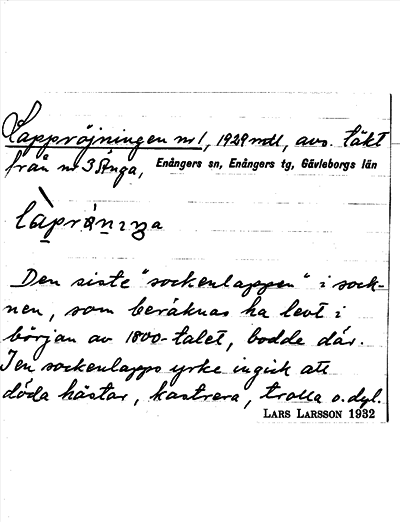 Lappröjningen nr 1, 1929 mtl, avs. täkt
från nr 3 Ånga, Enångers sn, Enångers tg, Gävleborgs län
Den siste "sockenlappen" i sock-
nen, som beräknas ha levt i
början av 1800-talet, bodde där.
I en sockenlapps yrke ingick att
döda hästar, kastrera, trolla o.dyl.
LARS LARSSON 1932